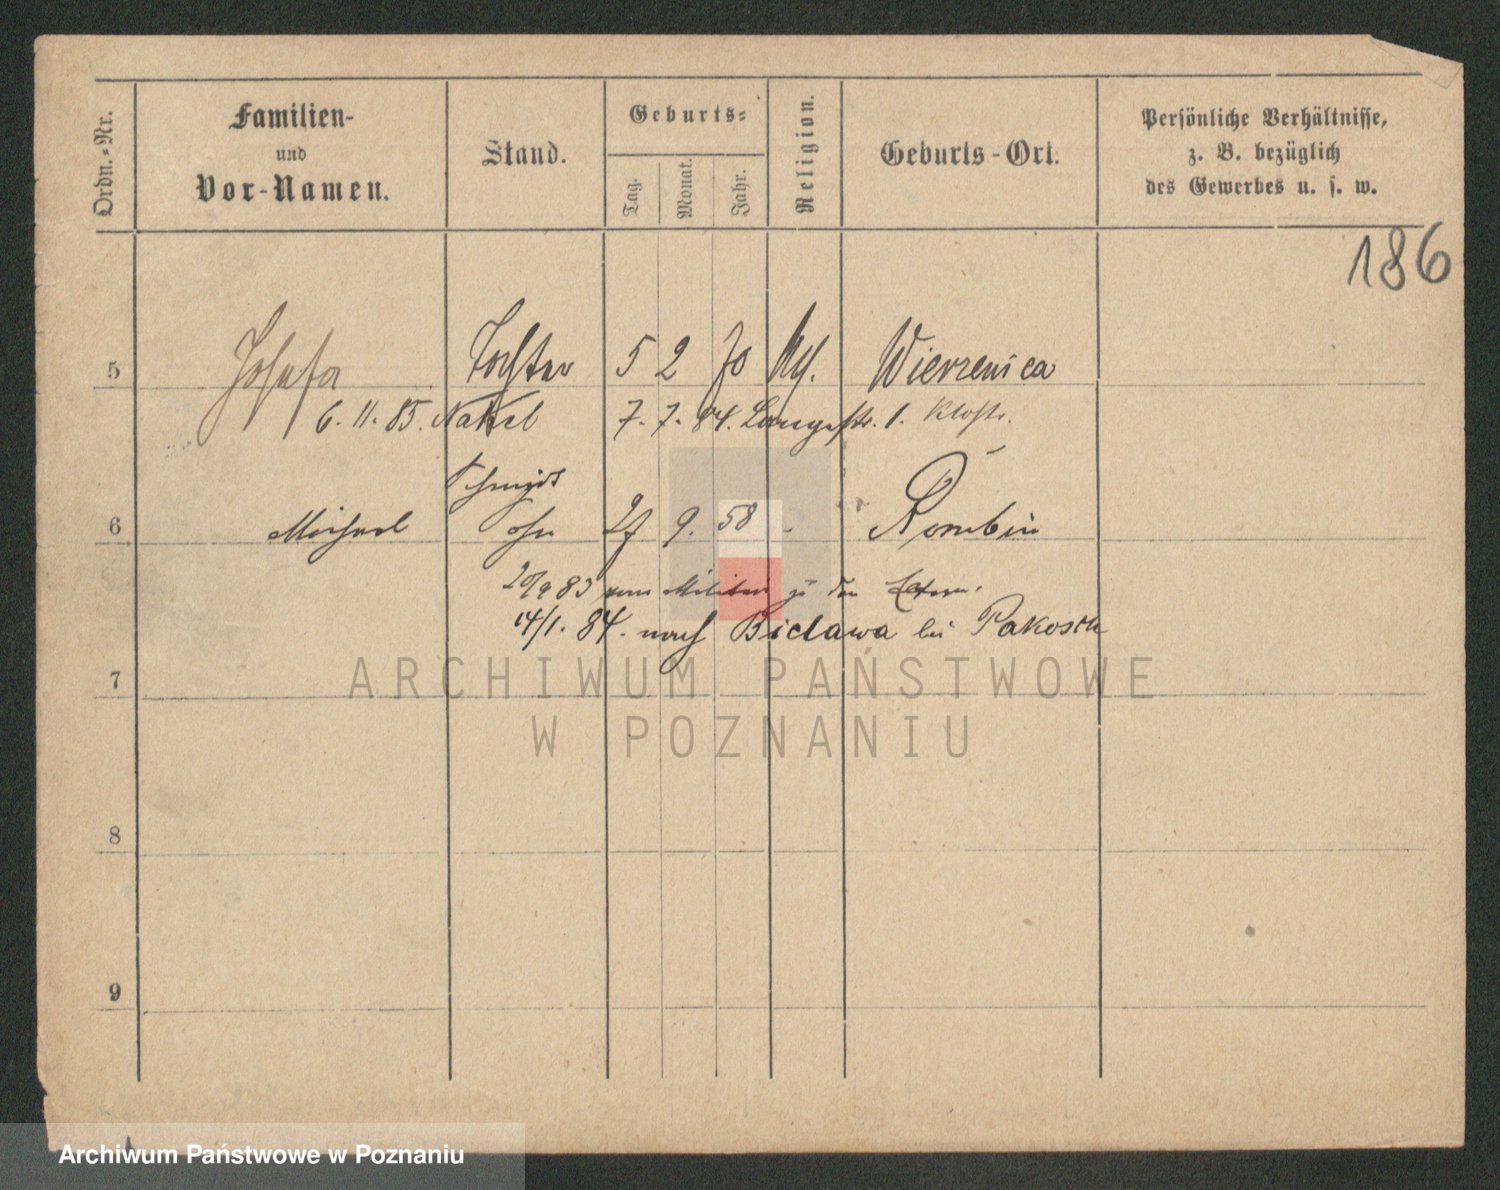 Ordn.-Nr.
Familien-
und
Vor-Namen.
Stand.
Geburts-
Tag.
Monat.
Jahr.
Religion.
Geburts-Ort.
Persönliche Verhältnisse,
z. B. bezüglich
des Gewerbes u. s. w.
186
5 Josefa Tochter 5 2 70 Wierzenica
6. 11. 85. Nakel 7. 7. 84. Langestr. 1. Klostr.
6 Michael 27 9. 58 - Rombin
83 vom Militär zu den
14/1. 84. nach Bielawa bei Pakosch
7
ARCHIWUM PAŃSTWOWE
W POZNANIU
8
9
Archiwum Państwowe w Poznaniu